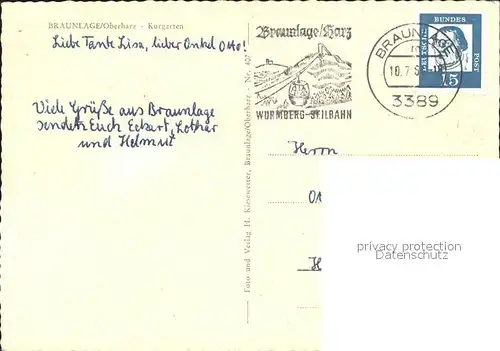 BRAUNLAGE/Oberharz - Kurgarten
Liebe Tante Lisa, lieber Onkel Otto!
Viele Grüße aus Braunlage
senden Euch Eckart, Lothar
und Helmut
Foto und Verlag H. Kiesewetter, Braunlage/Oberharz - Nr. 407
Braunlage/Harz
WURMBERG-SEILBAHN
BRAUNLAGE
3389
DEUTSCHE
BUNDES
POST
15
Herrn
privacy protection
Datenschutz